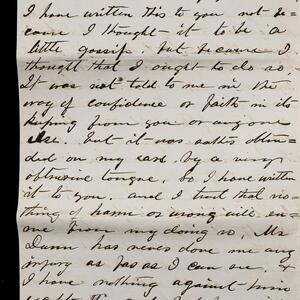 I have written this to you not be-
cause I thought it to be a
little gossip. but because I
thought that I ought to do so.
It was not told to me in the
way of confidence or faith in its
keeping from you or anyone
else. but it was rather obtru-
ded on my ear by a very
obtrusive tongue. So I have written
it to you. and I trust that no-
thing of harm or wrong will en-
sue from my doing so. Mr
Dunn has never done me any
injury as far as I can see. &
I have nothing against him